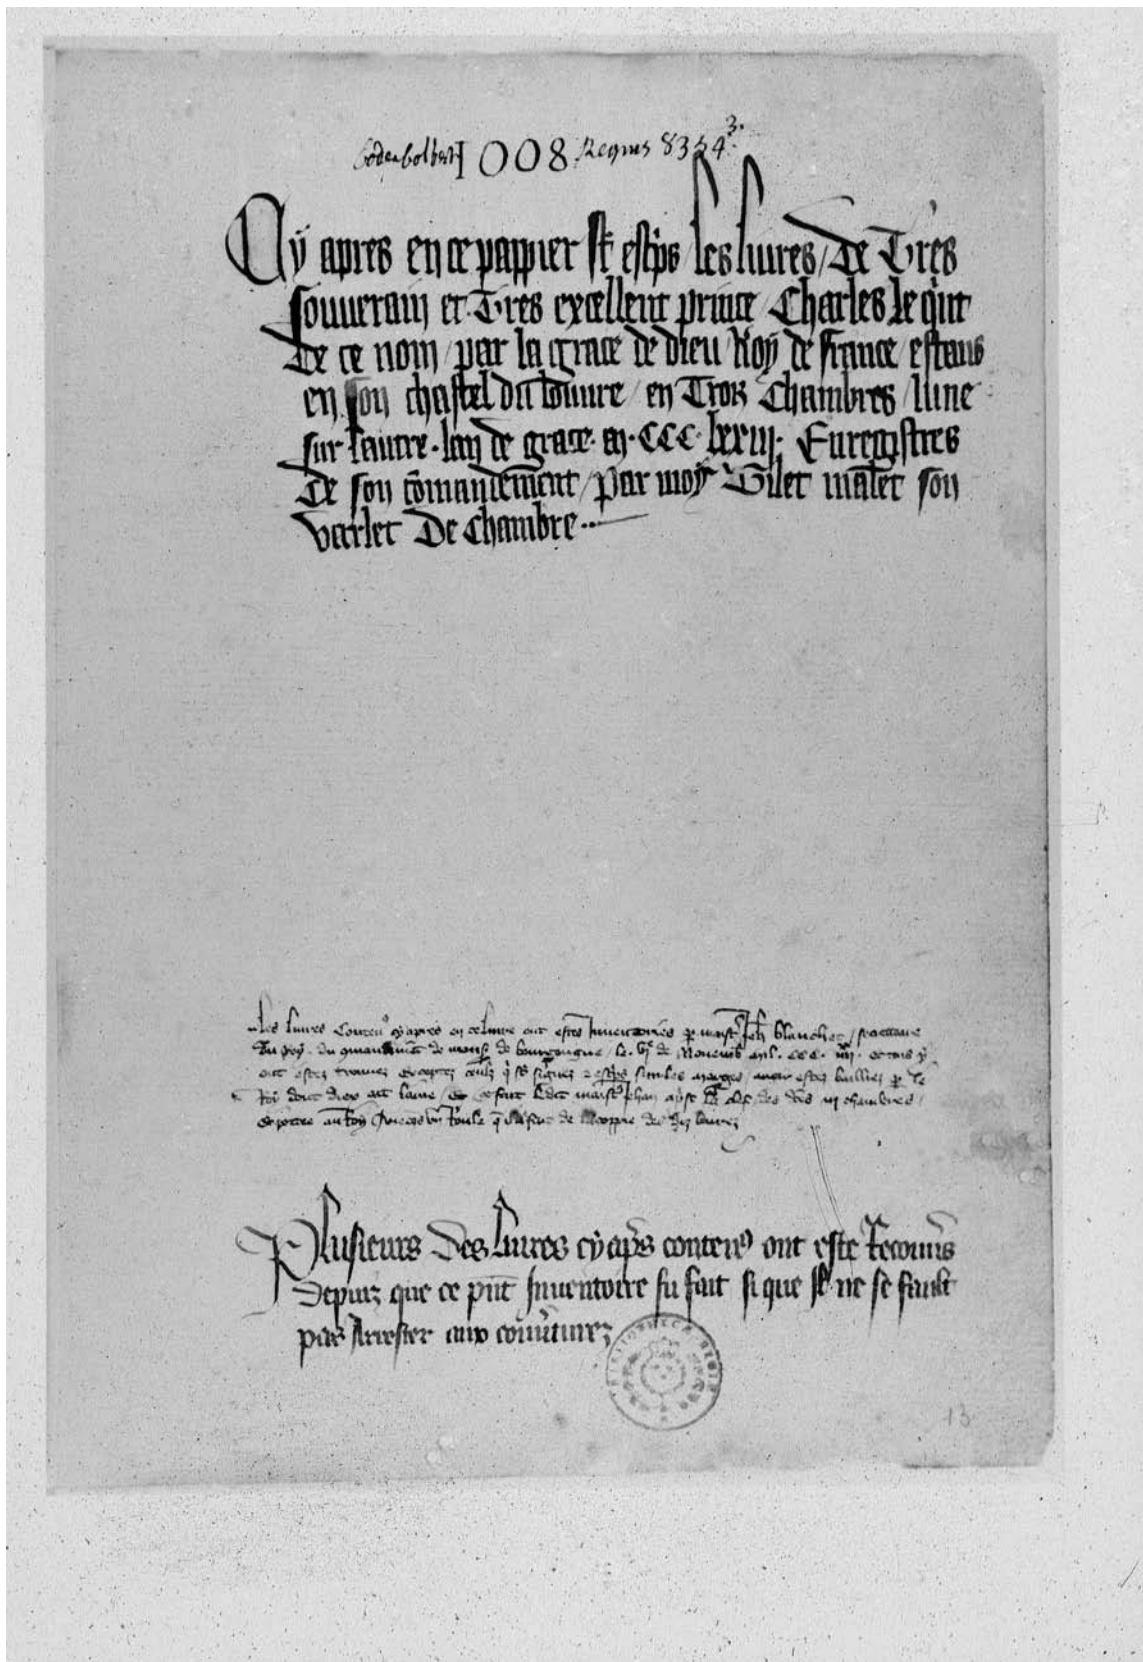 Codex Colbert 1008 Regius 8354 3.
Cy apres en ce pappier st escps / les liures / De Tres
souuerain et Tres excellent prince / Charles le qint
De ce nom / par la grace de dieu Roy de france / estans
en son chastel du louure / en Trois Chambres / lune
sur lautre · lan de grace · m · CCC · lxxiij · Enregistres
De son comandement / Par moy Gilet malet son
varlet De Chambre ··
Les liures contenus cy apres en ce liure ont estes Inuentoriés p maistre Jeh blanchet / secretaire
du Roy · du commandement de mons de bourgongne / le · vj de Nouemb mil · ccc · et touz y
ont estez trouuez exceptez ceulz q st signez es marges / auoir estez bailliez p le
Roy dont dieu ait lame / et ce fait Ledit maistre Jehan les clefs des iij chambres /
au Roy Auecques vn Roule q de la coppie des diz liures
Plusieurs Des liures cy aps contenus ont este Recouurs
depuiz que ce pnt Inuentoire fu fait si que Il ne se fault
pas Arrester aux couuertures
BIBLIOTHECA REGIA
13